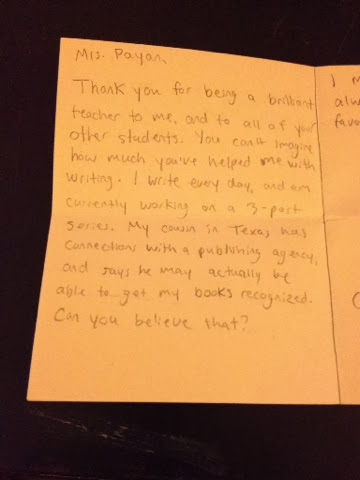 Mrs. Payan,
Thank you for being a brilliant
teacher to me, and to all of your
other students. You can't imagine
how much you've helped me with
writing. I write every day, and am
currently working on a 3-part
series. My cousin in Texas has
connections with a publishing agency,
and says he may actually be
able to get my books recognized.
Can you believe that?
I
alw
favo